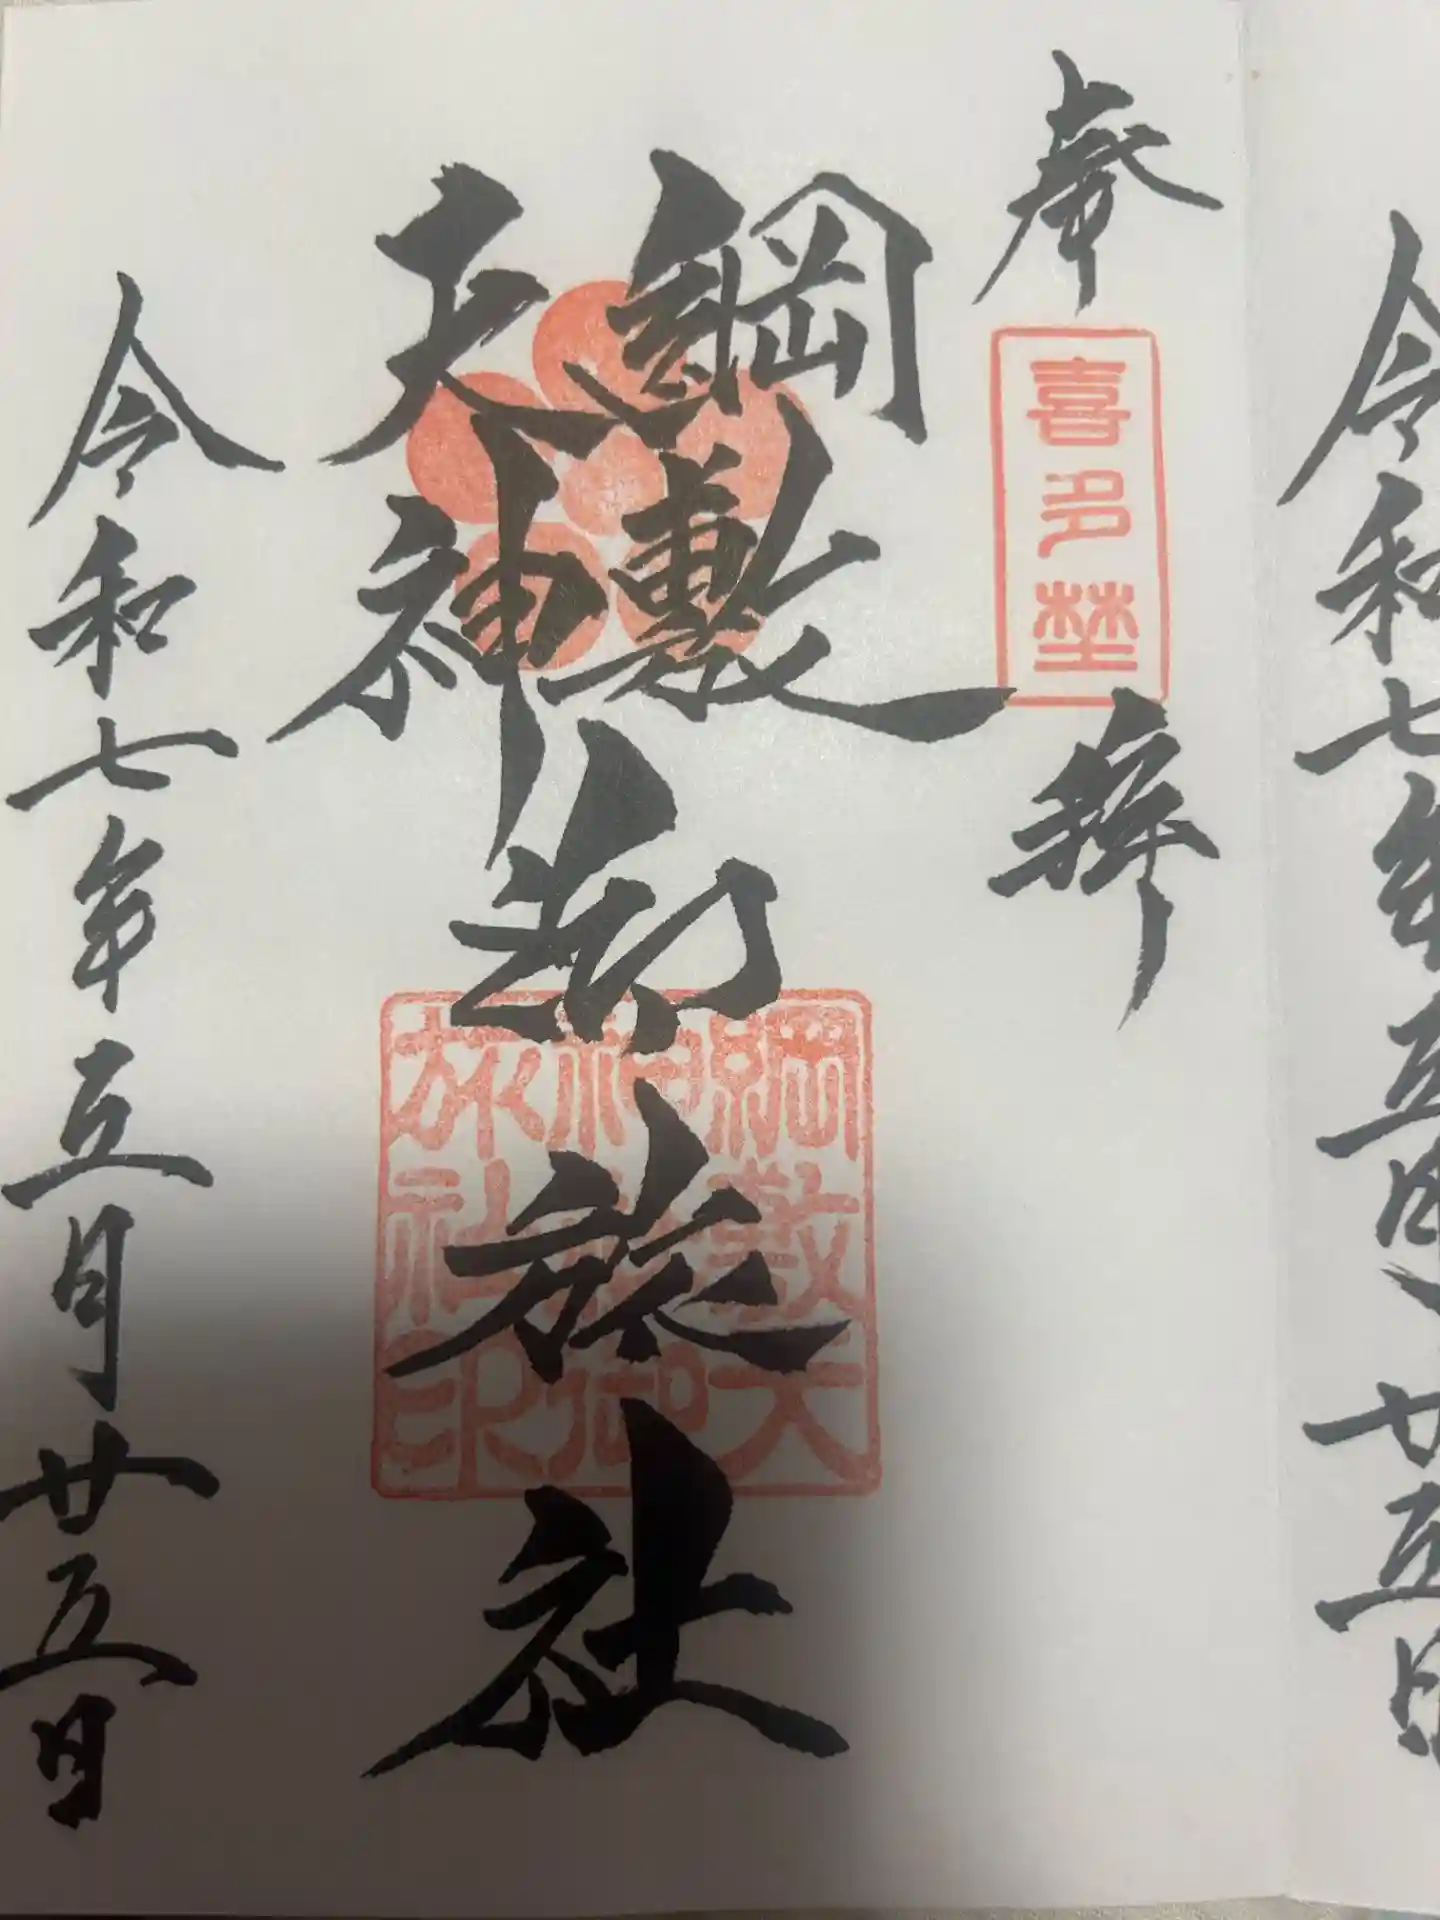 奉
喜多埜
拜
綱敷
天神
御旅社
綱敷天
神
御
旅社印
令和七年五月廿五日
令和七年五月廿五日